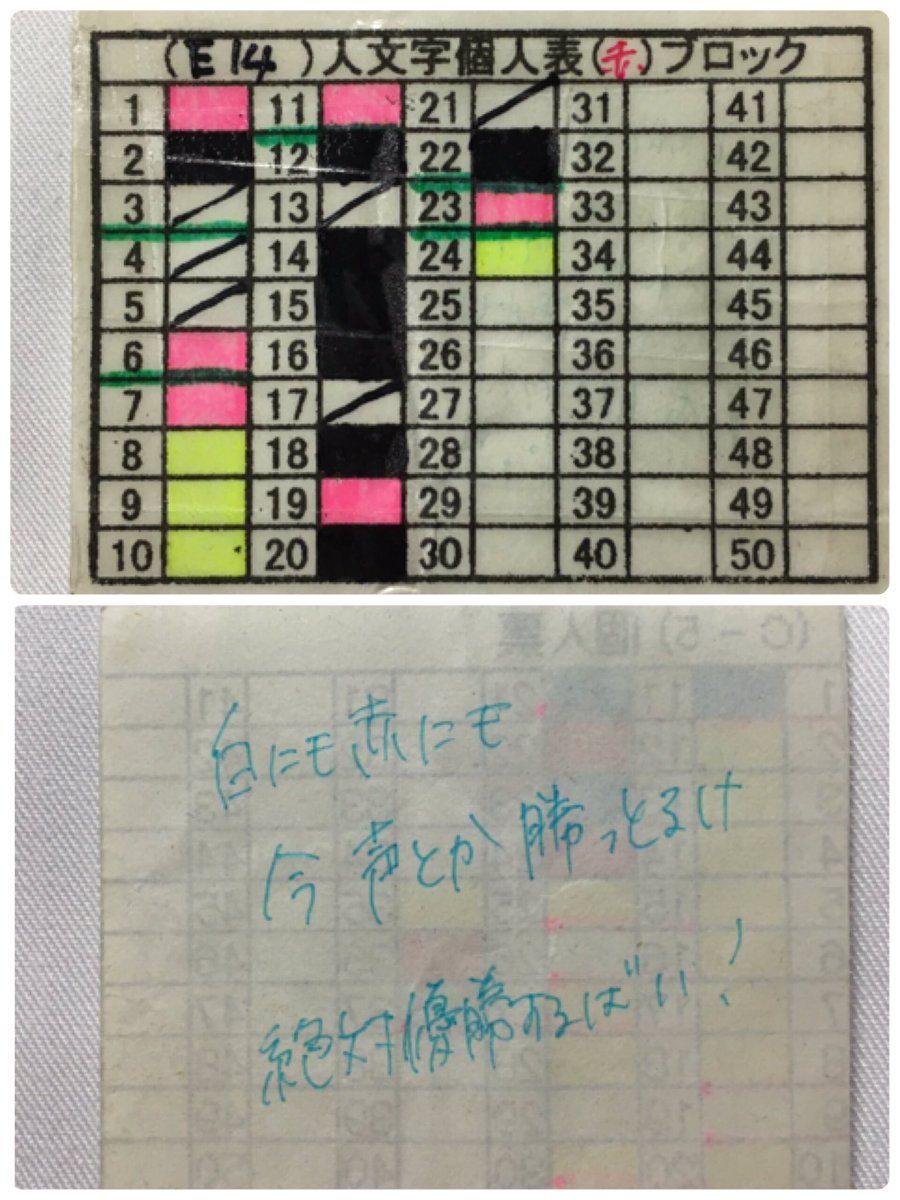 (E14)人文字個人表(赤)ブロック
1 11 21 31 41
2 12 22 32 42
3 13 23 33 43
4 14 24 34 44
5 15 25 35 45
6 16 26 36 46
7 17 27 37 47
8 18 28 38 48
9 19 29 39 49
10 20 30 40 50
白にも赤にも
今声とか勝っとるけ
絶対優勝するばい!